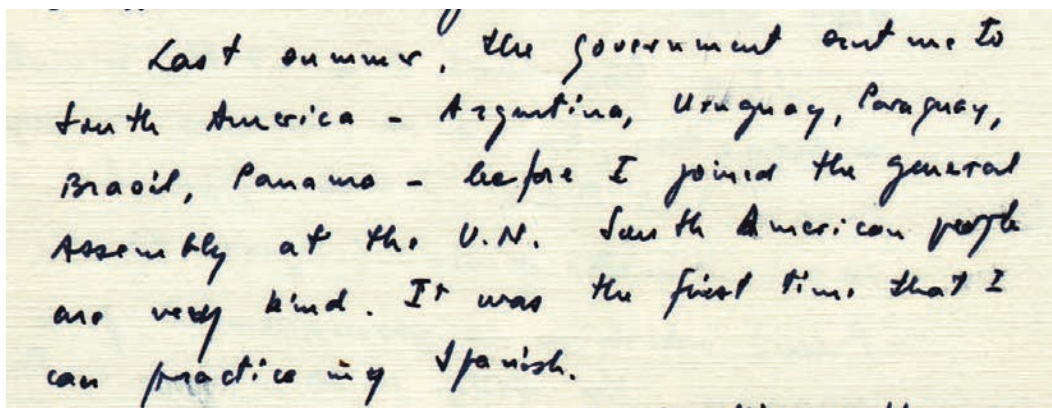 Last summer, the government sent me to
South America - Argentina, Uruguay, Paraguay,
Brasil, Panama - before I joined the general
Assembly at the U.N. South American people
are very kind. It was the first time that I
can practice my Spanish.